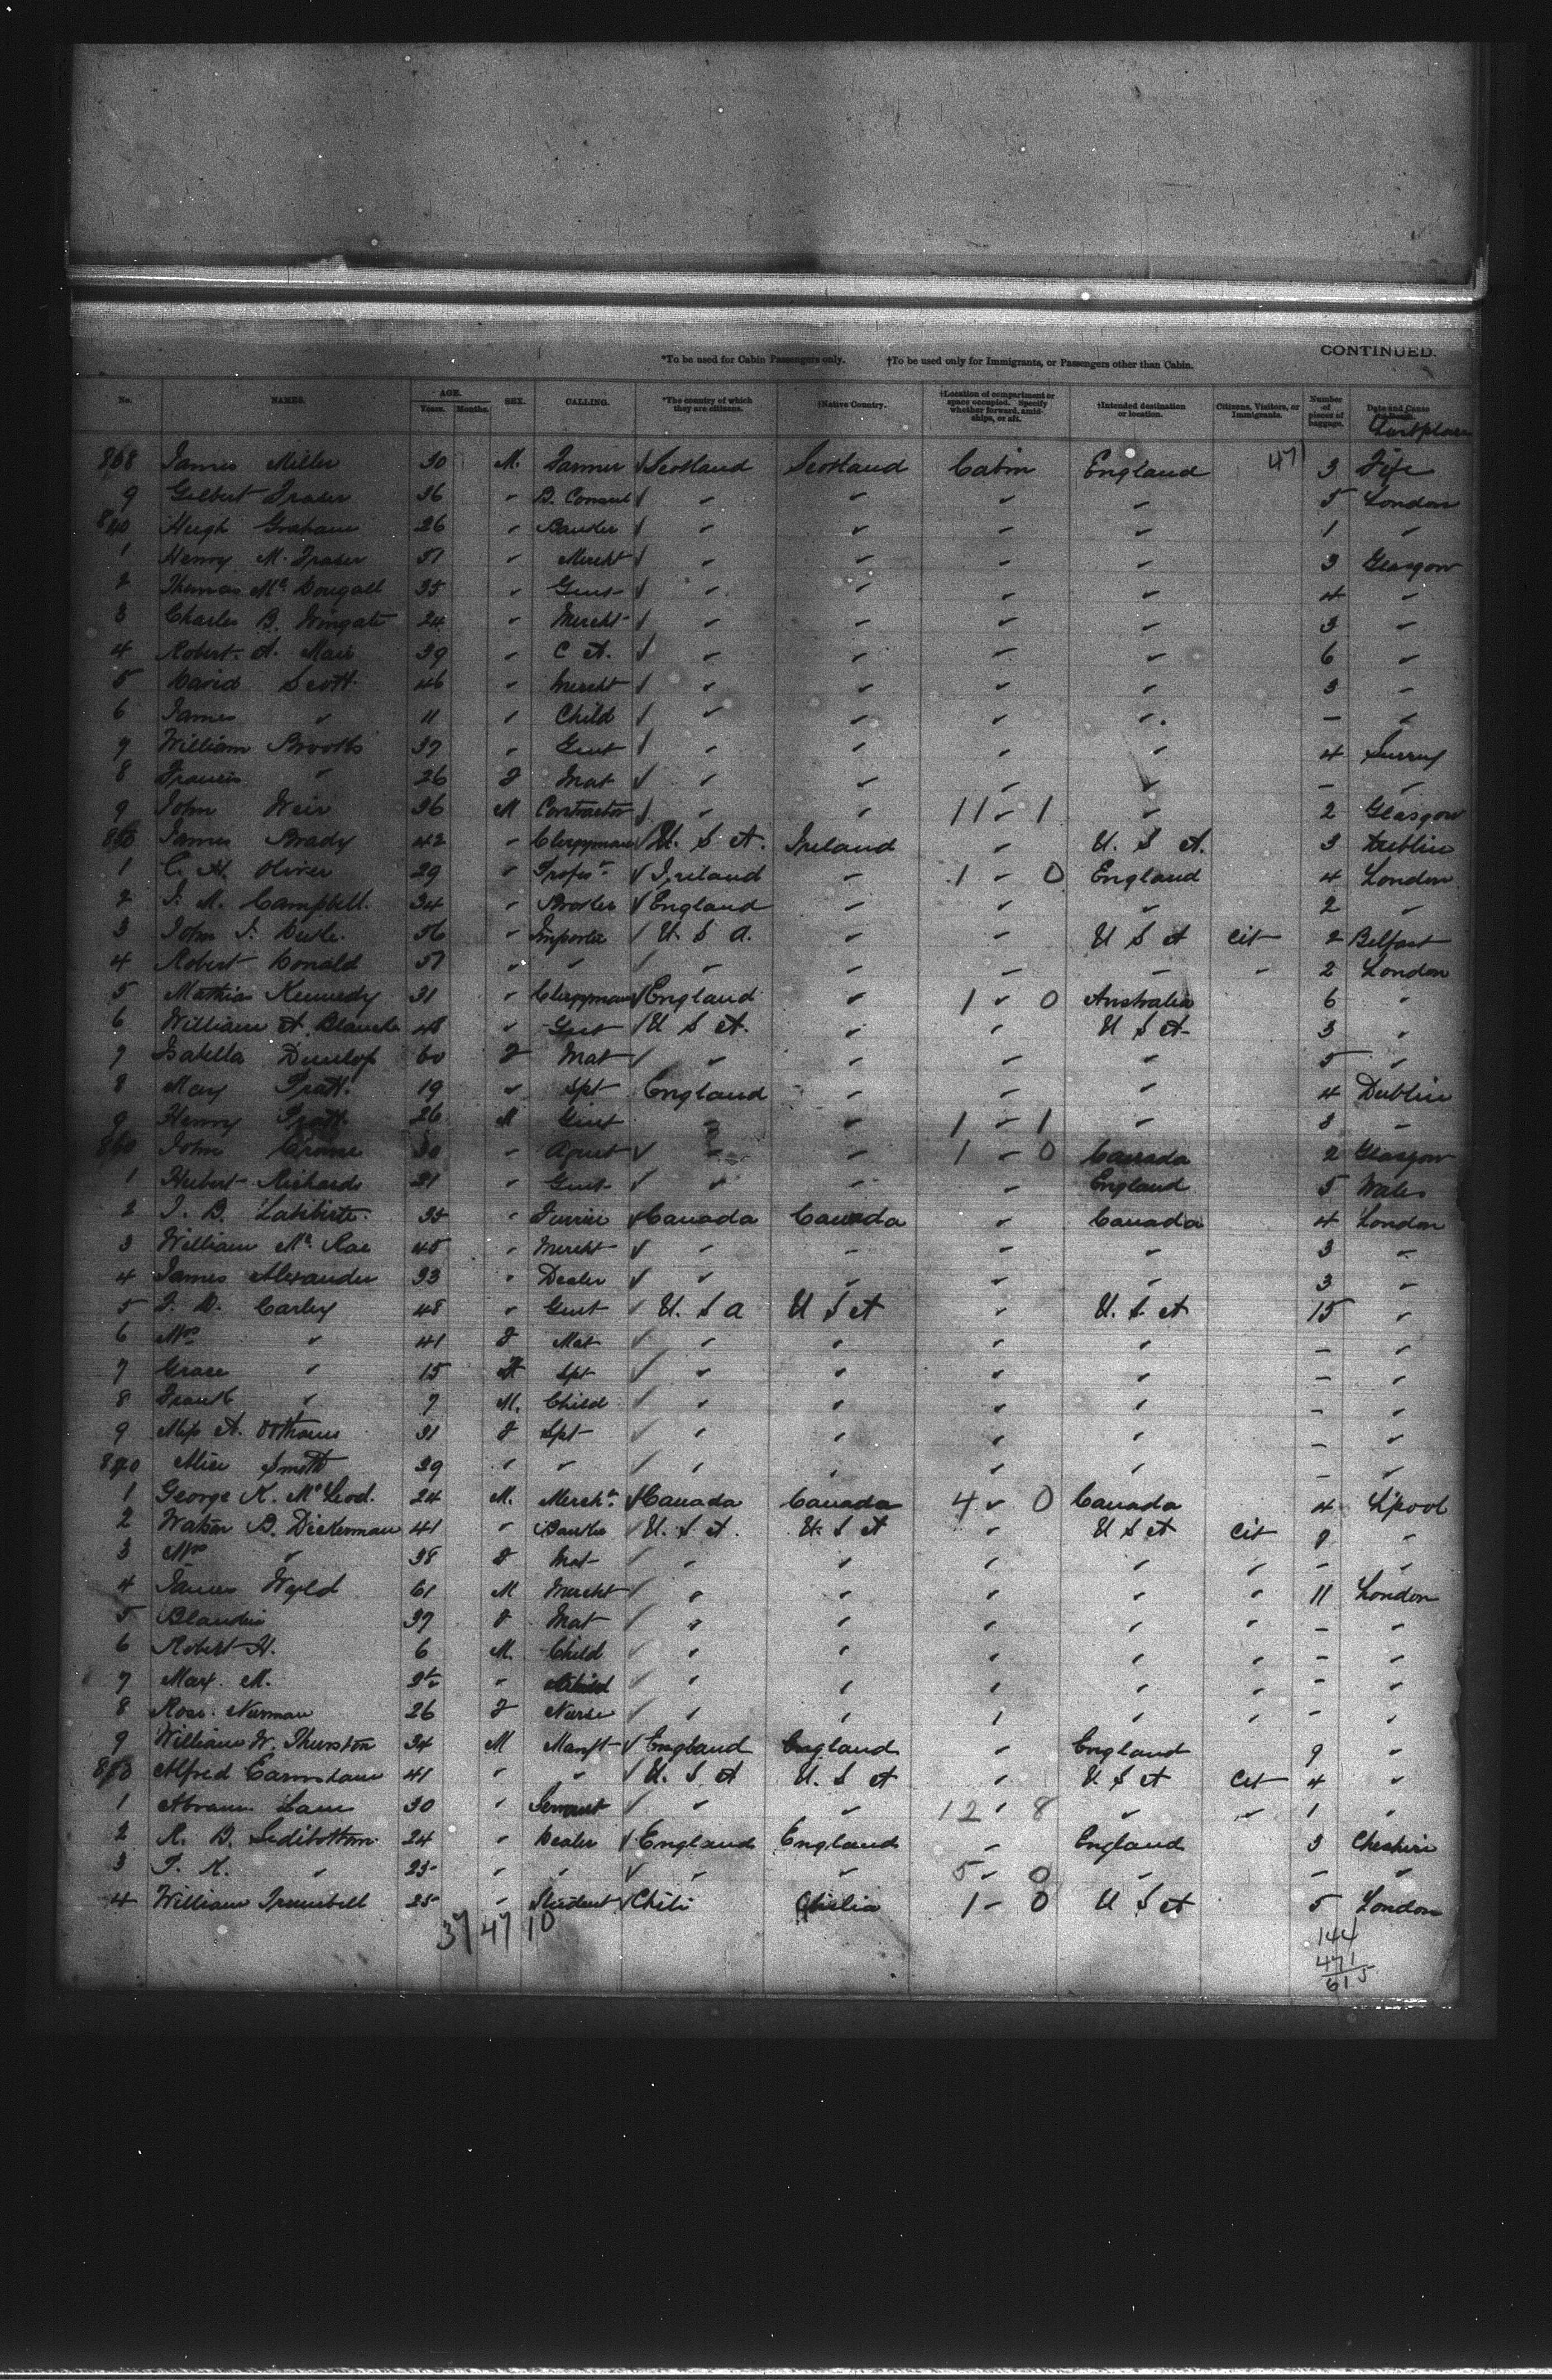 CONTINUED.
*To be used for Cabin Passengers only. †To be used only for Immigrants, or Passengers other than Cabin.
No. NAMES. AGE. Years. Months. SEX. CALLING. *The country of which they are citizens. †Native Country. †Location of compartment or space occupied. Specify whether forward, amidships, or aft. †Intended destination or location. Citizens, Visitors, or Immigrants. Number of pieces of baggage. Date and Cause
James Miller 30 M. Farmer √ Scotland Scotland Cabin England 471 3 Fife
9 Gilbert Fraser 36 " B. Consul √ " " " " 5 London
Hugh Graham 26 " Banker √ " " " " 1 "
1 Henry M. Fraser 37 " Mercht √ " " " " 3 Glasgow
2 Thomas Mc Dougall 35 " Gent √ " " " " 4 "
3 Charles B. Wingate 24 " Mercht √ " " " " 3 "
4 Robert A. 39 " C A. √ " " " " 6 "
5 David Scott 46 " Mercht √ " " " " 3 "
6 James " 11 " Child √ " " " " – "
7 William 37 " Gent √ " " " " 4 Surrey
8 Francis " 26 F Mat √ " " " " – "
9 John Weir 36 M Contractor √ " " 11 - 1 " 2 Glasgow
James Brady 42 " Clergyman √ U. S A. Ireland " U. S A. 3 Dublin
1 C. H. Oliver 29 " Profesr √ Ireland " 1 - 0 England 4 London
2 J. M. Campbell 34 " √ England " " " 2 "
3 John J. 56 " Importer / U. S A. " " U S A Cit 2 Belfast
4 Robert Donald 57 " " / " " " " " 2 London
5 Mathias Kennedy 31 " Clergyman √ England " 1 - 0 Australia 6 "
6 William A. 48 " Gent √ U S A. " " U S A 3 "
7 Isabella Dunlop 60 F Mat √ " " " " 5 "
8 Mary Pratt 19 " Spt England " " " 4 Dublin
9 Henry Pratt 26 M Gent " " 1 - 1 " 3 "
John 30 " Agent √ " " 1 - 0 Canada 2 Glasgow
1 Hubert Richards 31 " Gent √ " " " England 5 Wales
2 J. B. 35 " √ Canada Canada " Canada 4 London
3 William Mc Rae 45 " Mercht √ " " " " 3 "
4 James Alexander 33 " Dealer √ " " " " 3 "
5 Carley 48 " Gent √ U. S A U S A " U. S. A 15 "
6 Mrs " 41 F Mat √ " " " " – "
7 Grace " 15 F Spt √ " " " " – "
8 Frank " 7 M. Child √ " " " " – "
9 Miss A. 31 F Spt √ " " " " – "
Alice Smith 39 " " √ " " " " – "
1 George K. McLeod. 24 M. Mercht √ Canada Canada 4 " 0 Canada 4 L'pool
2 Watson B. Dickerman 41 " Banker √ U. S A. U. S A " U S A Cit 8 "
3 Mrs " 38 F Mat √ " " " " " – "
4 James Wyld 61 M Mercht √ " " " " " 11 London
5 37 F Mat √ " " " " " – "
6 Robert H. 6 M. Child √ " " " " " – "
7 Max. M. " √ " " " " " – "
8 Rose Newman 26 F Nurse √ " " " " " – "
9 William W. Thurston 34 M Manft √ England England " England 9 "
Alfred Earnshaw 41 " " √ U. S A U. S A " U S A Cit 4 "
1 Abram Lane 30 " Servant √ " " 12 " 8 " " 1 "
2 R. B. Sidebottom 24 " Dealer √ England England " England 3 Cheshire
3 T. K. " 23 " " √ " " 5 - 0 " – "
4 William 25 " Student √ Chili 1 - 0 U S A 5 London
37 47 10
144
471
615